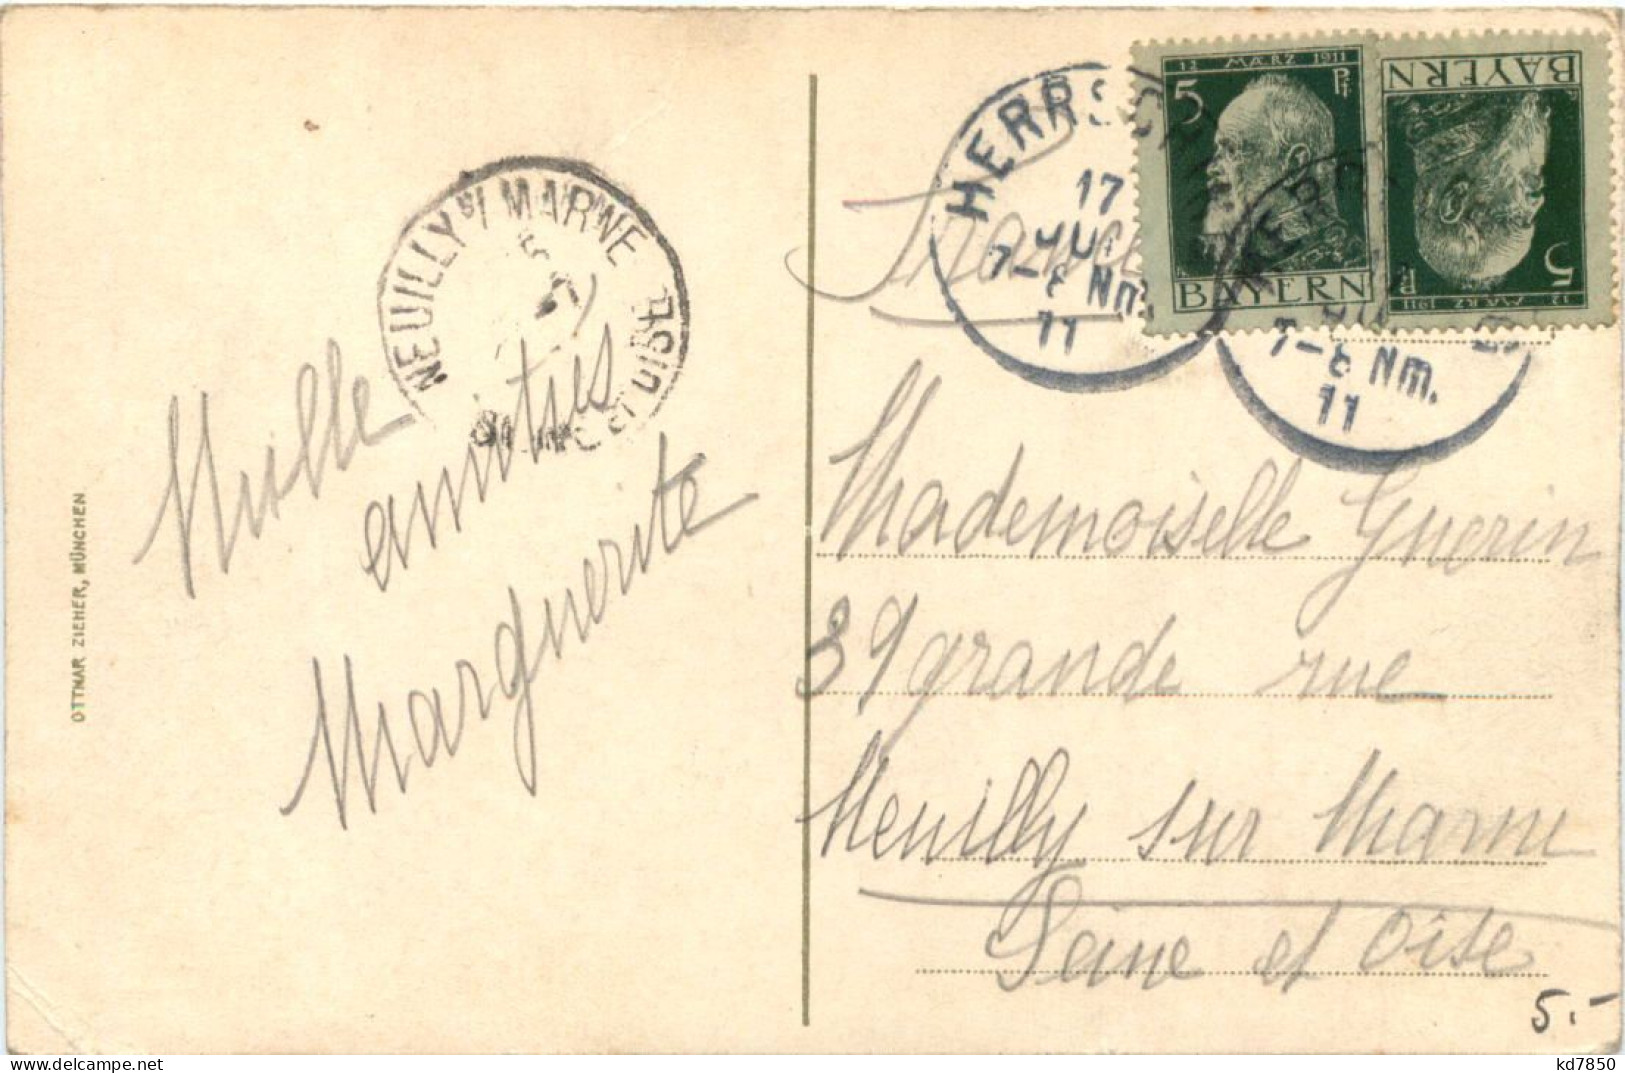 NEUILLY S/ MARNE
Mille
amitiés
Marguerite
OTTMAR ZIEHER, MÜNCHEN
HERRSCHIN
17
JUL
7-8 Nm.
11
7-8 Nm.
11
12 MÄRZ 1911
5 Pf
BAYERN
12 MÄRZ 1911
5 Pf
BAYERN
France
Mademoiselle Guerin
39 grande rue
Neuilly sur Marne
Seine et Oise
5.-
kd7850